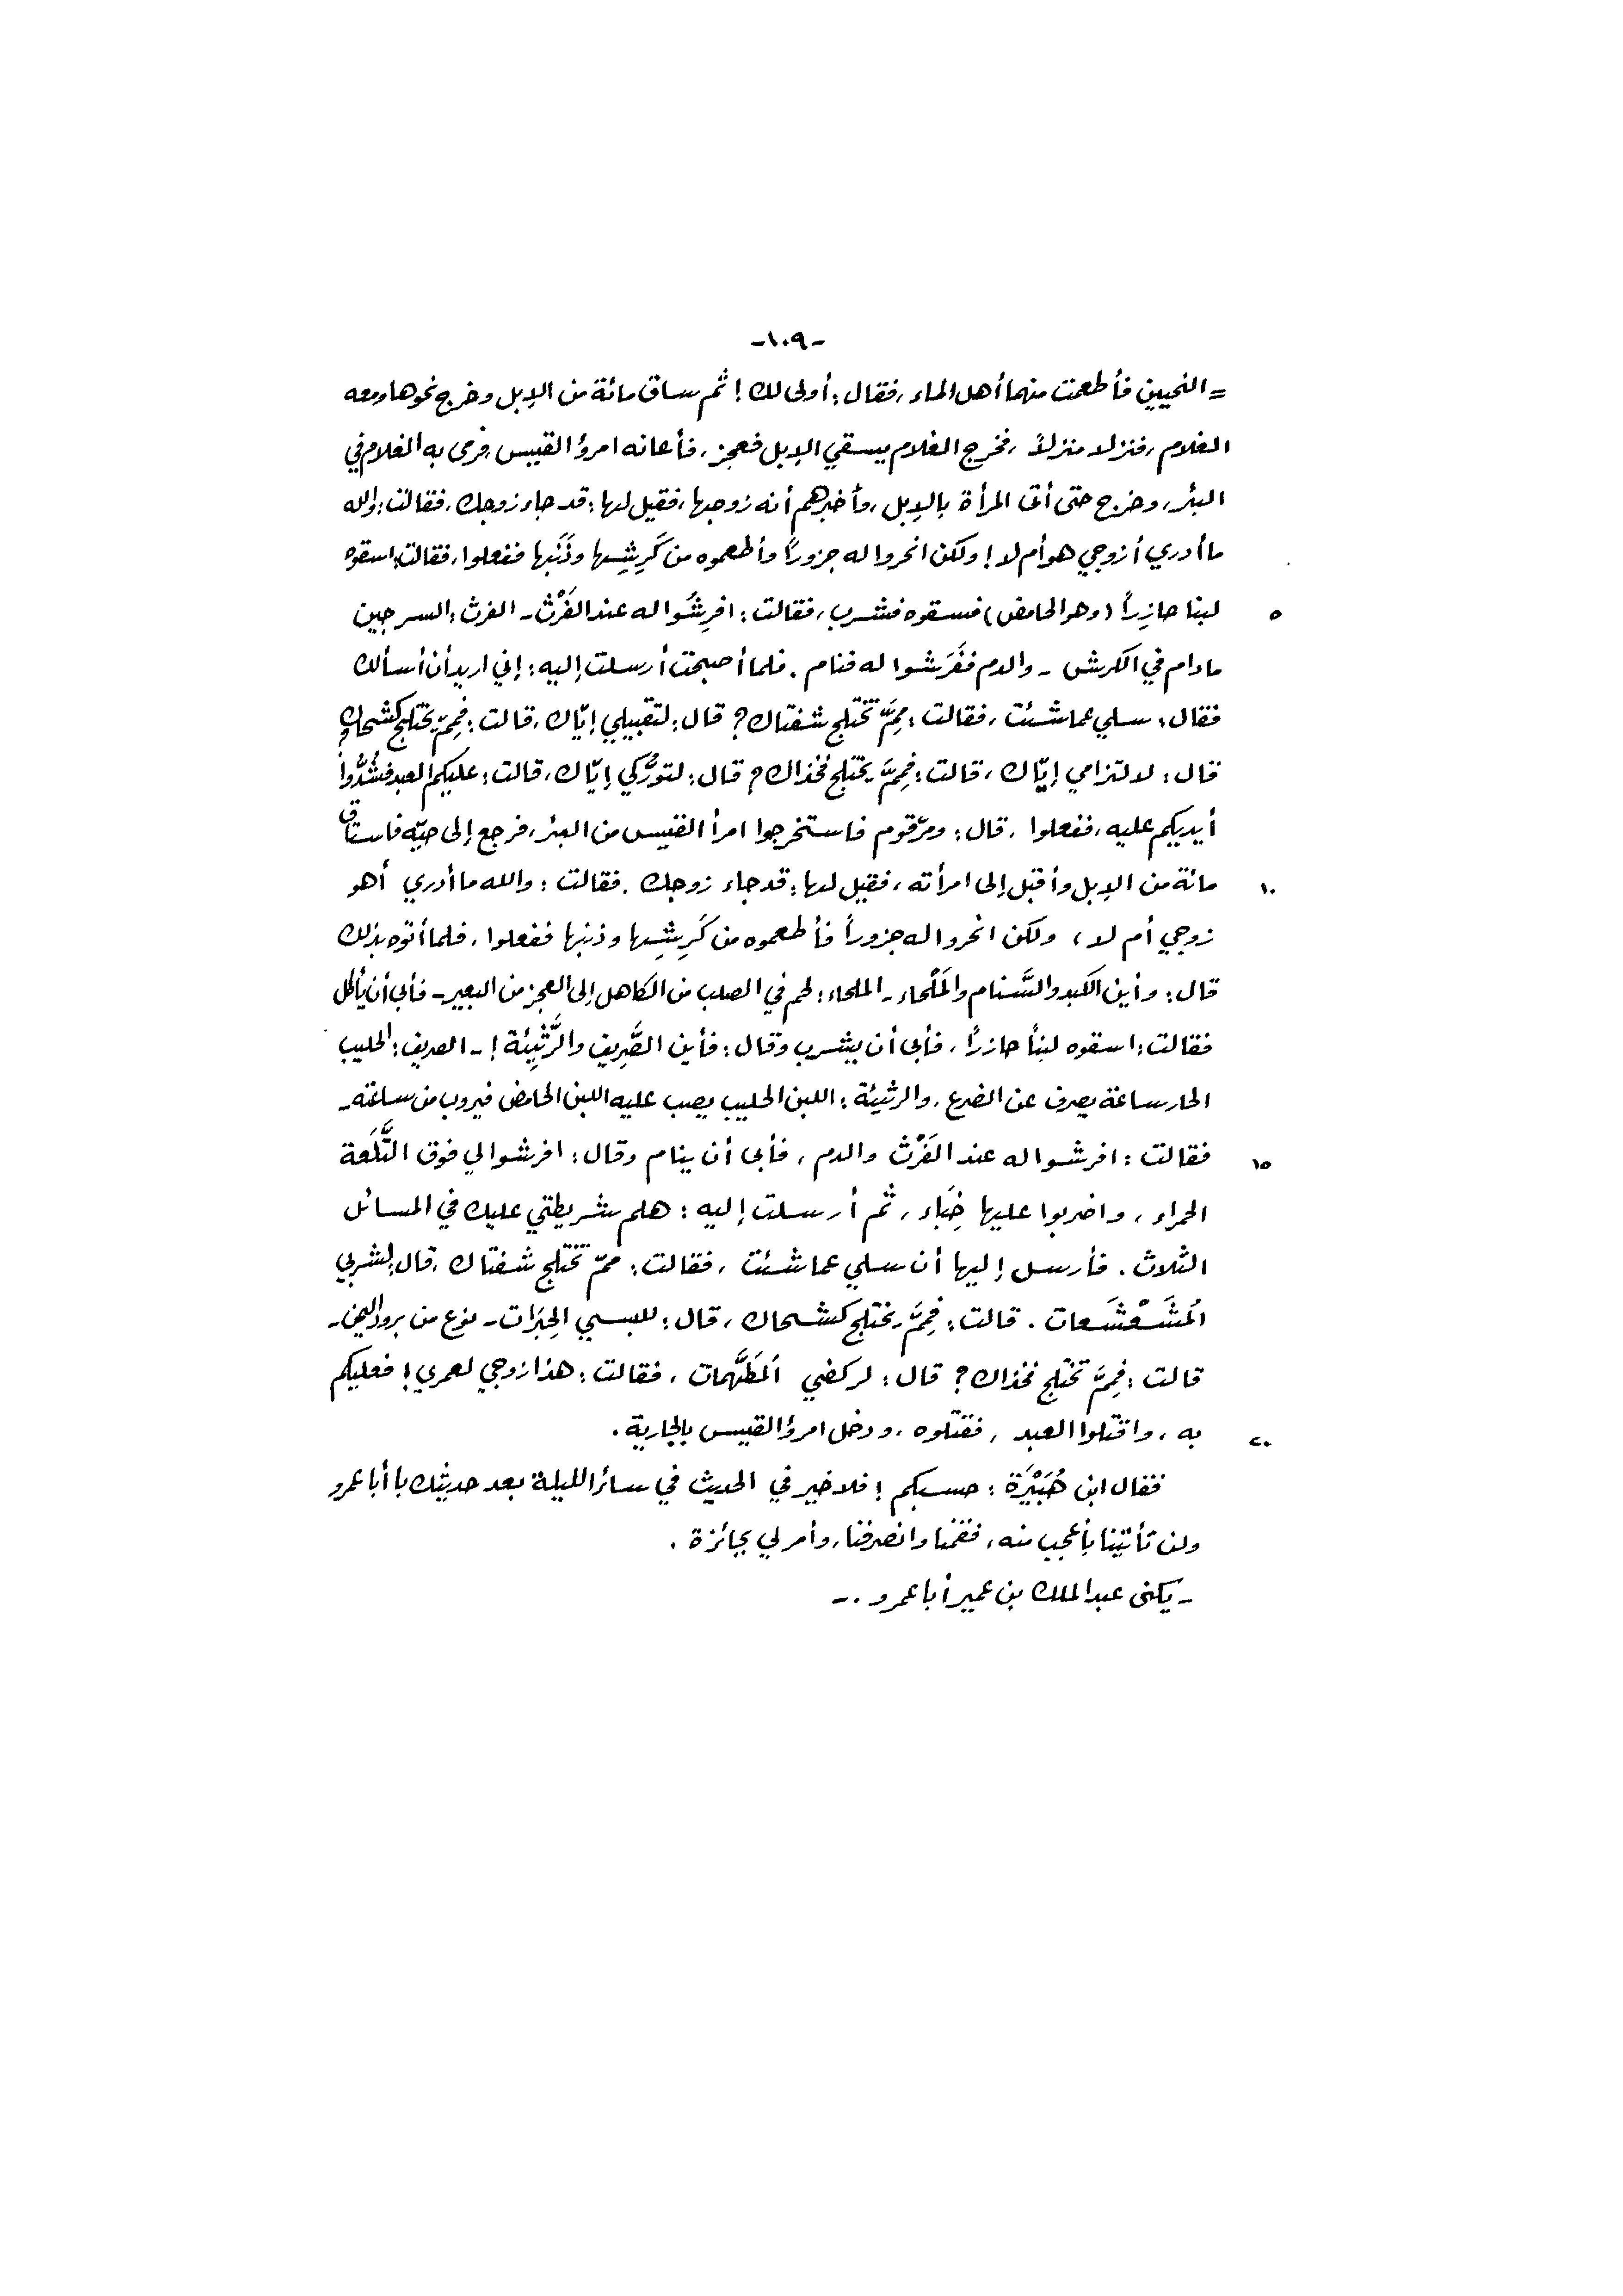 -١٠٩-
= النحيين فأطعمت منهما أهل الماء، فقال: أولى لك! ثم ساق مائة من الإبل وخرج نحوها ومعه
الغلام، فنزلا منزلاً، فخرج الغلام يسقي الإبل فعجز، فأعانه امرؤ القيس، فرمى به الغلام في
البئر، وخرج حتى أتى المرأة بالإبل، وأخبرهم أنه زوجها، فقيل لها: قد جاء زوجك، فقالت: والله
ما أدري أزوجي هو أم لا! ولكن انحروا له جزوراً وأطعموه من كَرِشِها وذَنَبها ففعلوا، فقالت: اسقوه
٥ لبنا حازِراً (وهو الحامض) فسقوه فشرب، فقالت: افرِشُوا له عند الفَرْث - الفرث: السرجين
مادام في الكرش - والدم ففَرَشوا له فنام. فلما أصبحت أرسلت إليه: إني اريد أن أسألك
فقال: سلي عما شئت، فقالت: مِمَّ تختلج شفتاك؟ قال: لتقبيلي إيّاك، قالت: فمِمّ يختلج كشحاك؟
قال: لالتزامي إيّاك، قالت: فمِمَّ يختلج فخذاك؟ قال: لتورُّكي إيّاك، قالت: عليكم العبد فشُدُّوا
أيديكم عليه، ففعلوا، قال: ومرّ قوم فاستخرجوا امرأ القيس من البئر، فرجع إلى حيّه فاستاق
١٠ مائة من الإبل وأقبل إلى امرأته، فقيل لها: قد جاء زوجك. فقالت: والله ما أدري أهو
زوجي أم لا، ولكن انحروا له جزوراً فأطعموه من كَرِشِها وذنبها ففعلوا، فلما أتوه بذلك
قال: وأين الكبد والسَّنام والمَلْحاء - الملحاء: لحم في الصلب من الكاهل إلى العجز من البعير - فأبى أن يأكل
فقالت: اسقوه لبناً حازراً، فأبى أن يشرب وقال: فأين الصَّرِيف والرَّثِيئة! - الصريف: الحليب
الحار ساعة يصرف عن الضرع، والرثيئة: اللبن الحليب يصب عليه اللبن الحامض فيروب من ساعته -
١٥ فقالت: افرشوا له عند الفَرْث والدم، فأبى أن ينام وقال: افرشوا لي فوق التَّلَعة
الحمراء، واضربوا عليها خِبَاء، ثم أرسلت إليه: هلم شريطتي عليك في المسائل
الثلاث. فأرسل إليها أن سلي عما شئت، فقالت: ممّ تختلج شفتاك، قال: لشربي
المُشَعْشَعات. قالت: فمِمَّ يختلج كشحاك، قال: للبسي الحِبَرات - نوع من برود اليمن -
قالت: فمِمَّ تختلج فخذاك؟ قال: لركضي المُطَهَّمات، فقالت: هذا زوجي لعمري! فعليكم
٢٠ به، واقتلوا العبد، فقتلوه، ودخل امرؤ القيس بالجارية.
فقال ابن هُبَيْرَة: حسبكم! فلا خير في الحديث في سائر الليلة بعد حديثك يا أبا عمرو
ولن تأتينا بأعجب منه، فقمنا وانصرفنا، وأمر لي بجائزة.
- يكنى عبد الملك بن عمير أبا عمرو. -